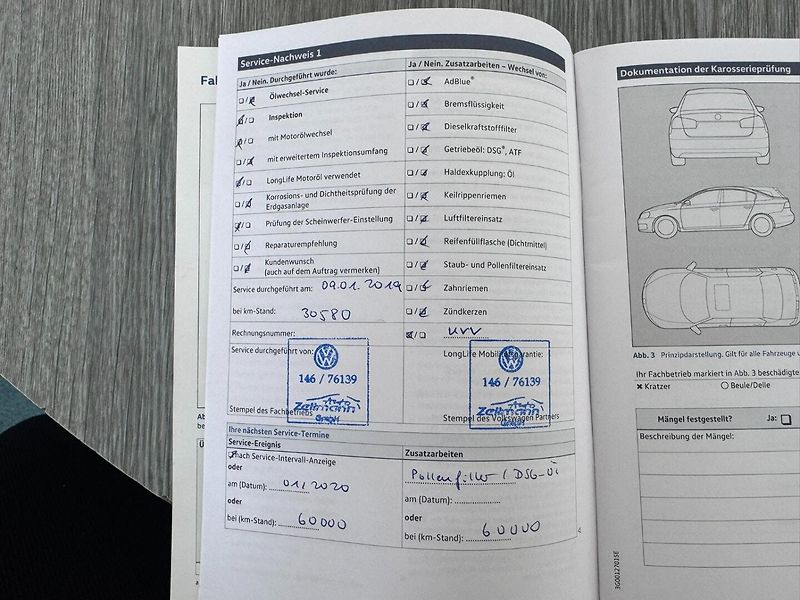 Service-Nachweis 1
Ja / Nein. Durchgeführt wurde:
Ölwechsel-Service
Inspektion
mit Motorölwechsel
mit erweitertem Inspektionsumfang
LongLife Motoröl verwendet
Korrosions- und Dichtheitsprüfung der
Erdgasanlage
Prüfung der Scheinwerfer-Einstellung
Reparaturempfehlung
Kundenwunsch
(auch auf dem Auftrag vermerken)
Service durchgeführt am: 09.01.2019
bei km-Stand: 30580
Rechnungsnummer:
Service durchgeführt von:
146 / 76139
Auto
Zellmann
GmbH
Stempel des Fachbetriebs
Ja / Nein. Zusatzarbeiten – Wechsel von:
AdBlue®
Bremsflüssigkeit
Dieselkraftstofffilter
Getriebeöl: DSG®, ATF
Haldexkupplung: Öl
Keilrippenriemen
Luftfiltereinsatz
Reifenfüllflasche (Dichtmittel)
Staub- und Pollenfiltereinsatz
Zahnriemen
Zündkerzen
LongLife Mobilitätsgarantie:
146 / 76139
Auto
Zellmann
GmbH
Stempel des Volkswagen Partners
Ihre nächsten Service-Termine
Service-Ereignis
nach Service-Intervall-Anzeige
oder
am (Datum): 01/2020
oder
bei (km-Stand): 60000
Zusatzarbeiten
Pollenfilter / DSG-Öl
am (Datum):
oder
bei (km-Stand): 60000
Dokumentation der Karosserieprüfung
Abb. 3 Prinzipdarstellung. Gilt für alle Fahrzeuge
Ihr Fachbetrieb markiert in Abb. 3 beschädigte
× Kratzer
○ Beule/Delle
Mängel festgestellt? Ja:
Beschreibung der Mängel:
3G0012701SE